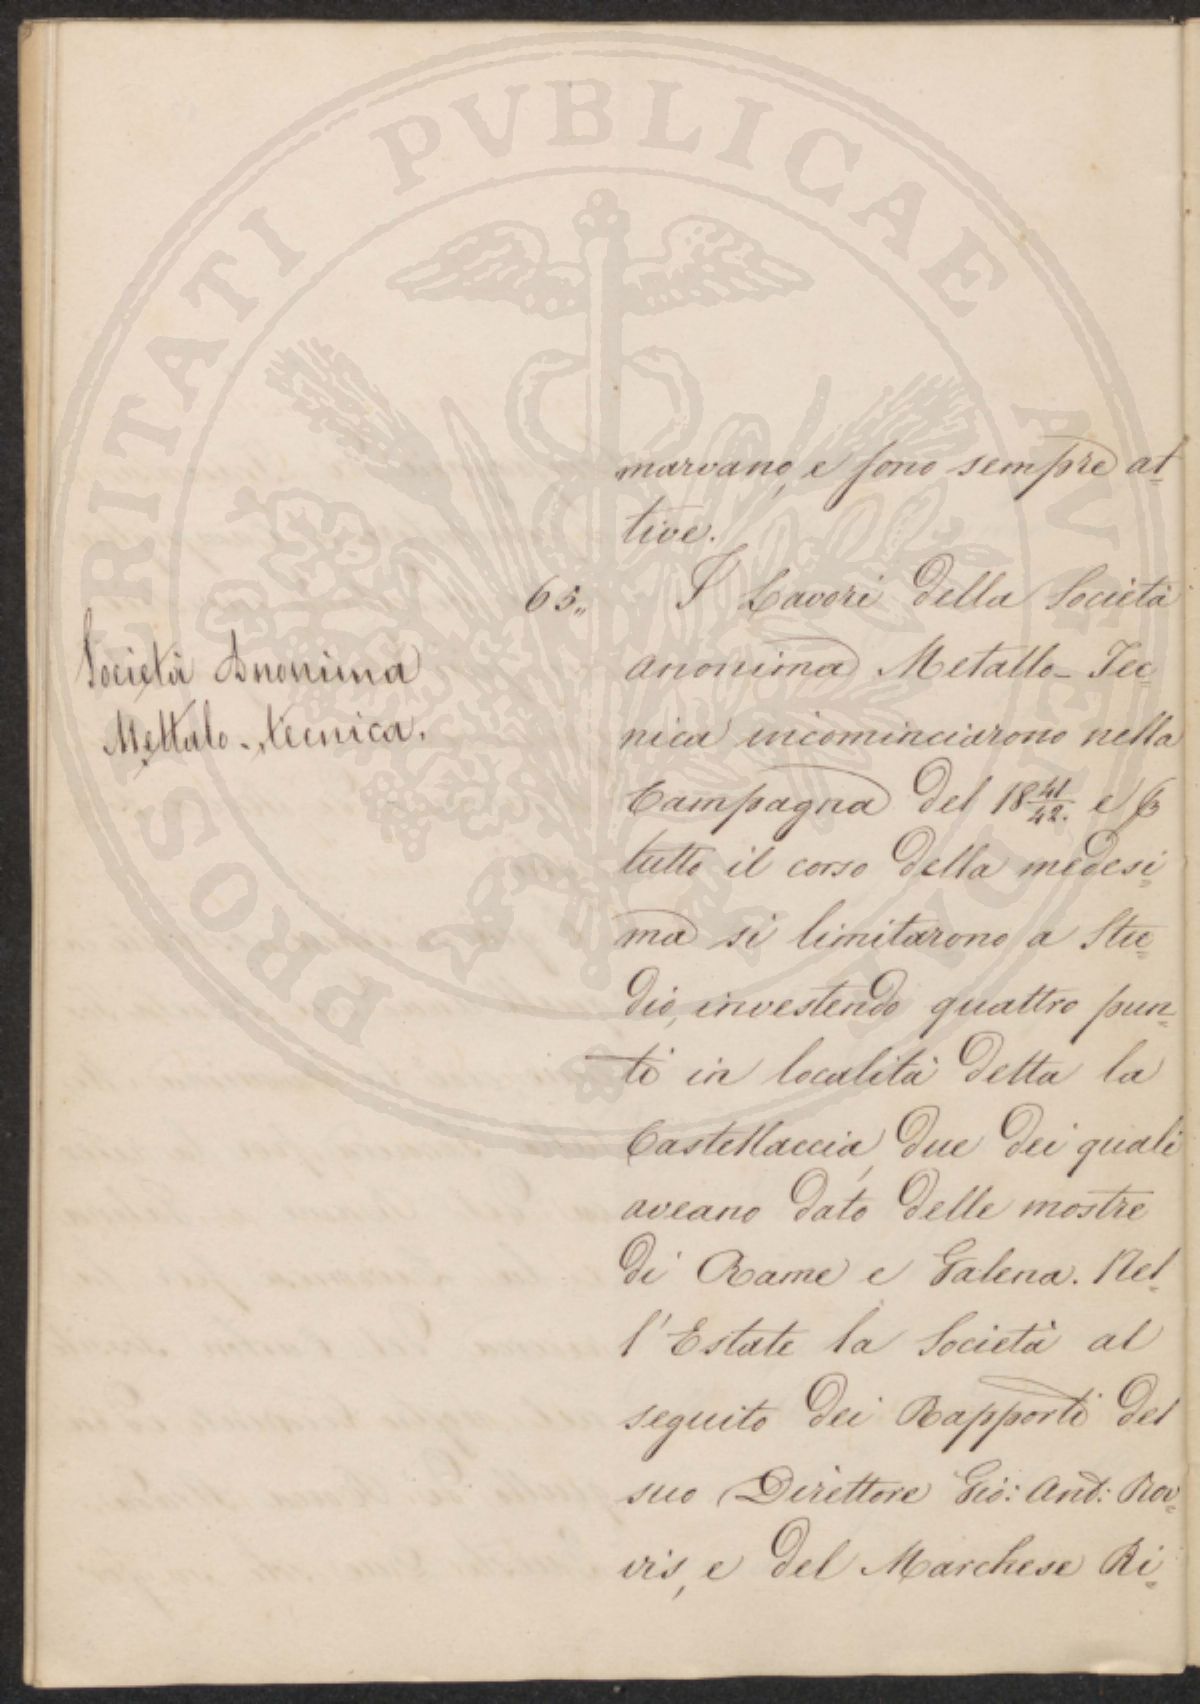 PROSPERITATI PVBLICAE AVGENDAE
marvano, e sono sempre at-
tive.
65,, I Lavori della Società
Società Anonima
anonima Metallo-Tec-
Mettalo-tecnica.
nica incominciarono nella
Campagna del 18 41/42. e p
tutto il corso della medesi=
ma si limitarono a Stu=
dio, investendo quattro pun=
ti in località detta la
Castellaccia, due dei quali
aveano dato delle mostre
di Rame e Galena. Nel=
l'Estate la Società al
seguito dei Rapporti del
suo Direttore Gio: And: Rov=
vis, e del Marchese Ri=